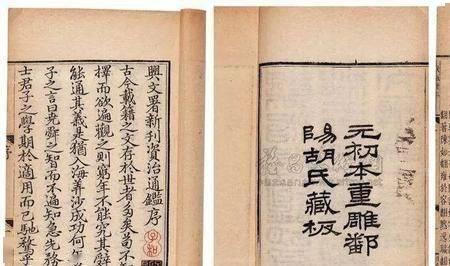 元初本重雕鄱
陽胡氏藏板
興文署新刊資治通鑑序
古今載籍之文存於世者多矣苟不
擇而欲遍觀之則窮年不能究其辭
能通其義是猶入海筭沙成功何
子之言曰堯舜之智而不遍知急先務
士君子之學期於適用而已馳騖乎